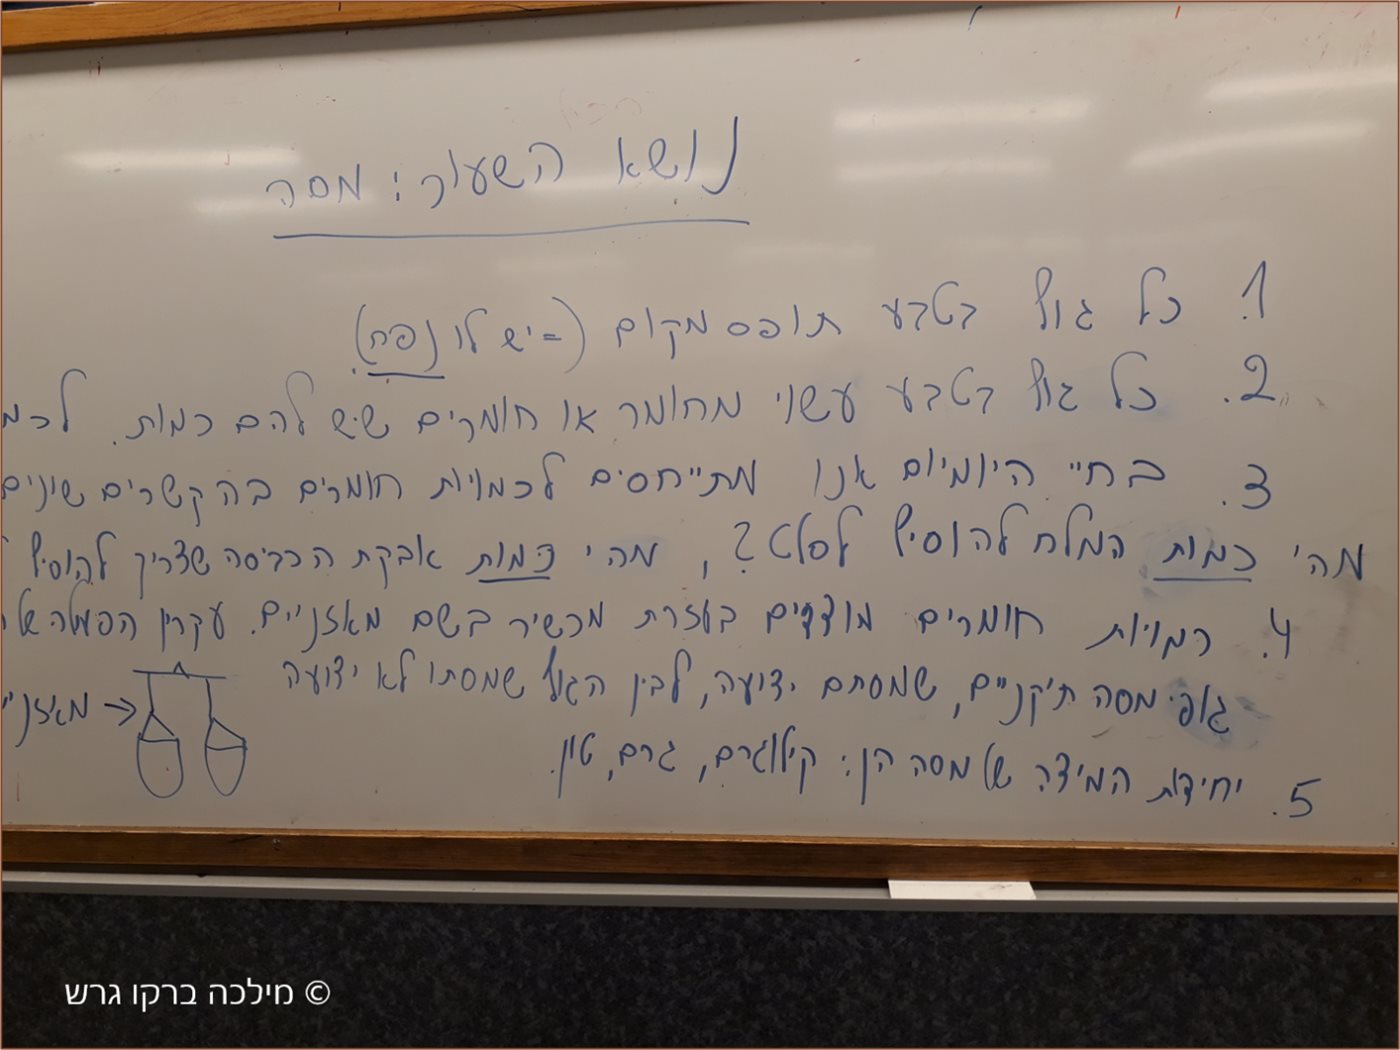 נושא השעור: מסה
1. כל גוף בטבע תופס מקום (= יש לו נפח).
2. כל גוף בטבע עשוי מחומר או חומרים שיש להם כמות.
3. בחיי היומיום אנו מתייחסים לכמויות חומרים בהקשרים שונים
מהי כמות המלח להוסיף לסלט?, מהי כמות אבקת הכביסה שצריך להוסיף
4. כמויות חומרים מודדים בעזרת מכשיר בשם מאזניים. עקרון הפעולה של
גופי מסה תיקניים, שמסתם ידועה, לבין הגוף שמסתו לא ידועה
מאזני
5. יחידת המידה של מסה הן: קילוגרם, גרם, טון.
© מילכה ברקו גרש